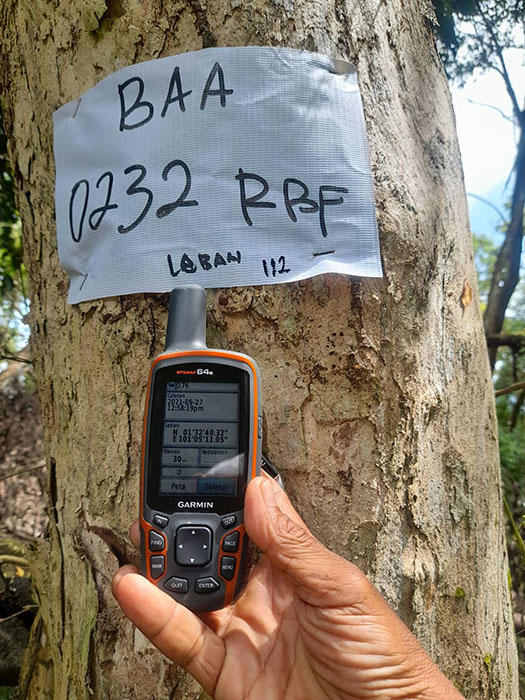 BAA
0232 RBF
LeBAN 112
GPSMAP 64s
176
Catatan
2021-09-27
12:58:19pm
Lokasi
N 01°32'40.32"
E 101°05'11.05"
Elevasi
Kedalaman
30m
Peta
Selesai
GARMIN
IN
OUT
FIND
PAGE
MARK
MENU
QUIT
ENTER